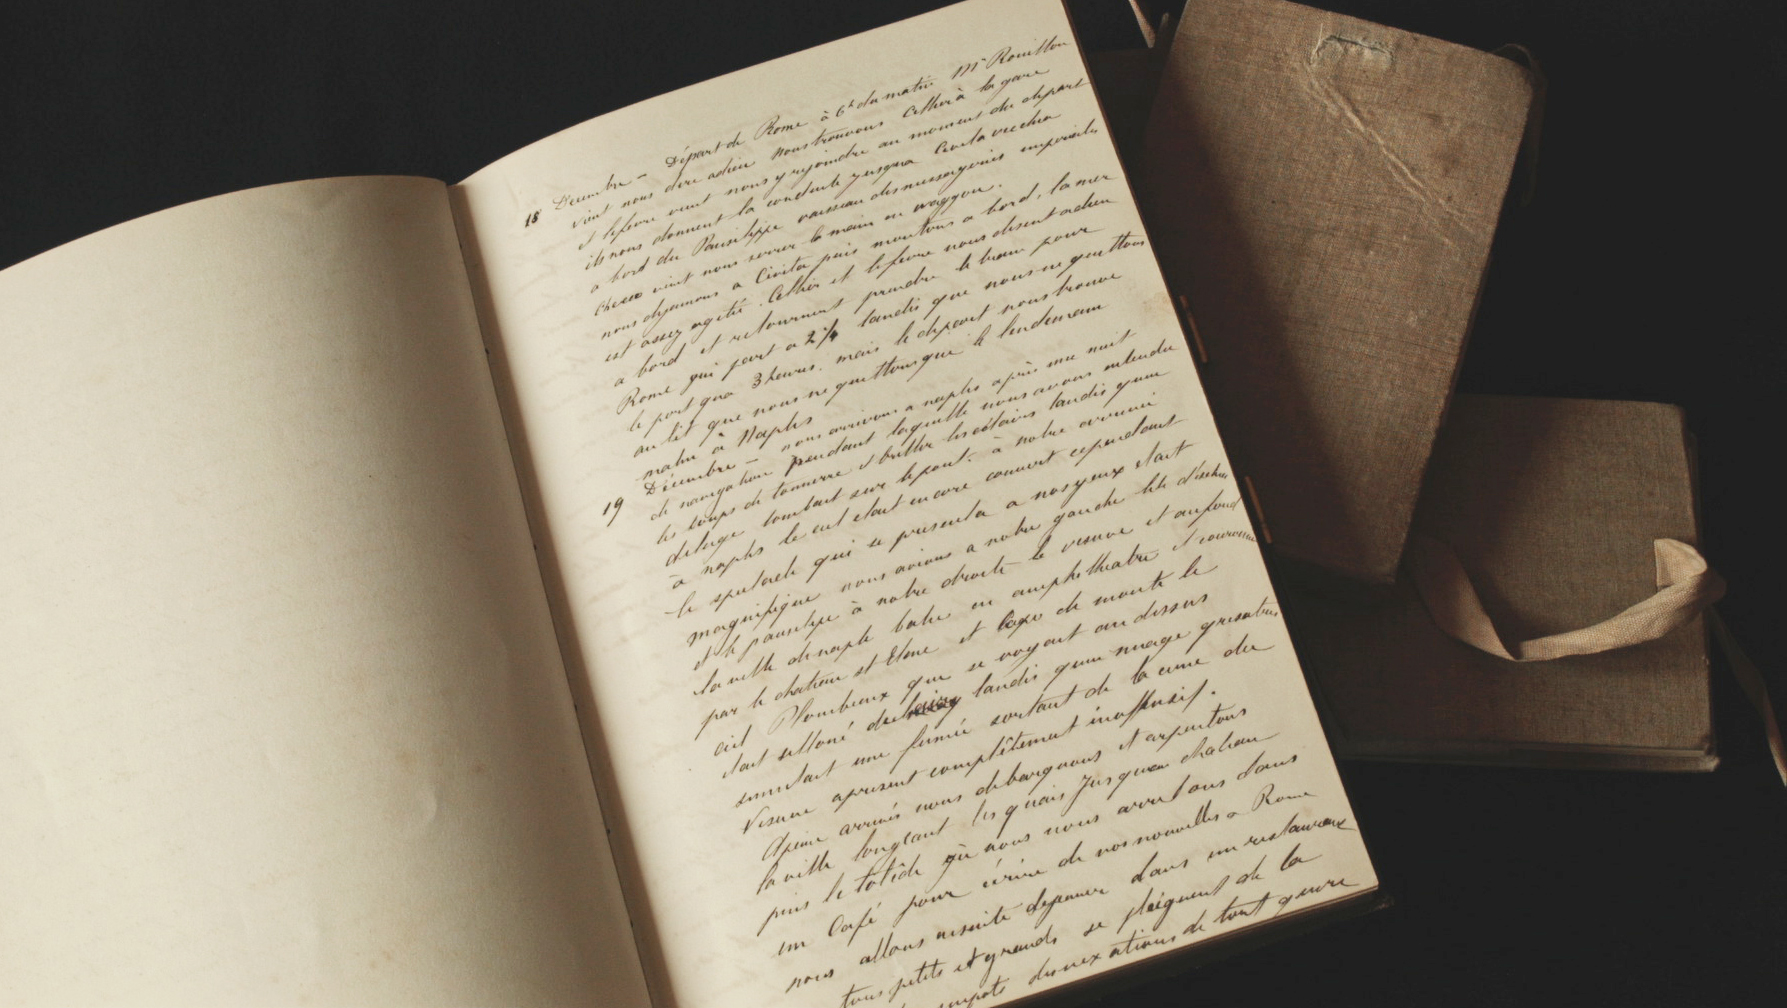 18 Décembre – Départ de Rome à 6h du matin Mr Rouillon
vient nous dire adieu nous trouvons Cellier à la gare
et lefevre vient nous y rejoindre au moment du depart
ils nous donnent la conduite jusqua Civita vecchia
a bord du Pausilippe vaisseau des messageries imperiales
vient nous serrer la main en waggon.
nous dejeunons a Civita puis montons a bord, la mer
est assez agitée. Cellier et lefevre nous disent adieu
a bord et retournent prendre le train pour
Rome qui part a 2 tandis que nous ne quittons
le port qua 3 heures. mais le depart nous trouve
au lit que nous ne quittons que le lendemain
matin à Naples
19 Décembre – nous arrivons a naples après une nuit
de navigation pendant laquelle nous avons entendu
les coups de tonnerre et briller les éclairs tandis quun
deluge tombait sur le pont. à notre arrivée
à naples le ciel etait encore couvert cependant
le spectacle qui se presenta a nos yeux etait
magnifique nous avions a notre gauche
et le pausilipe à notre droite le vesuve et au fond
la ville de naple batie en amphitheatre et couronnée
par le chateau st Elme et Capo di monte le
ciel Plombeux que se voyait au dessus
etait sillonné tandis quun nuage grisatre
simulait une fumée sortant de la cime du
Vesuve apresent complêtement inoffensif.
Apeine arrivés nous debarquons et arpentons
la ville longeant les quais jusquau chateau
puis le où nous nous arretons dans
un Café pour écrire de nos nouvelles a Rome
nous allons ensuite dejeuner dans un restaurant
tous petits et grands se plaignent de la
impots de tout genre